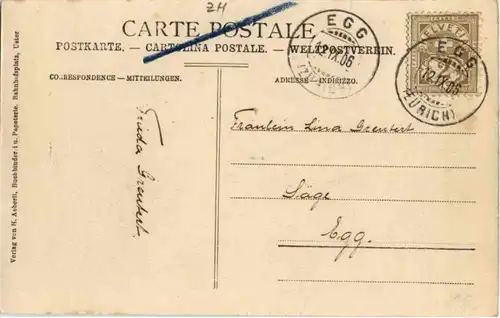 ZH
CARTE POSTALE
POSTKARTE. — CARTOLINA POSTALE. — WELTPOSTVEREIN.
CORRESPONDENCE — MITTEILUNGEN.
ADRESSE — INDIRIZZO.
EGG
12.IX.06
(ZÜRICH)
HELVETIA
EGG
12.IX.06
(ZÜRICH)
Fräulein Lina Greutert
Säge
Egg.
Frieda Greutert.
Verlag von H. Aeberli, Buchbinder i u. Papeterie, Bahnhofsplatz, Uster